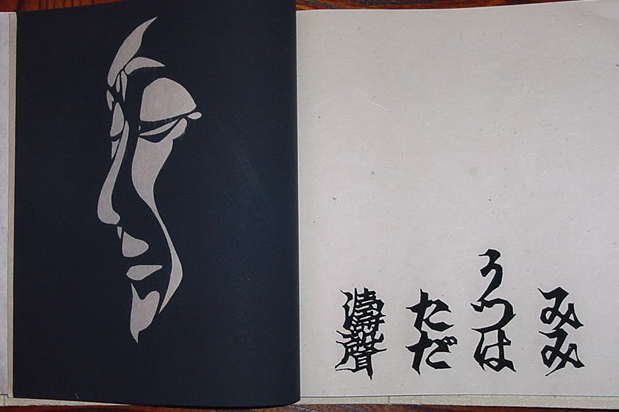 みみ
うつは
たゞ
濤聲